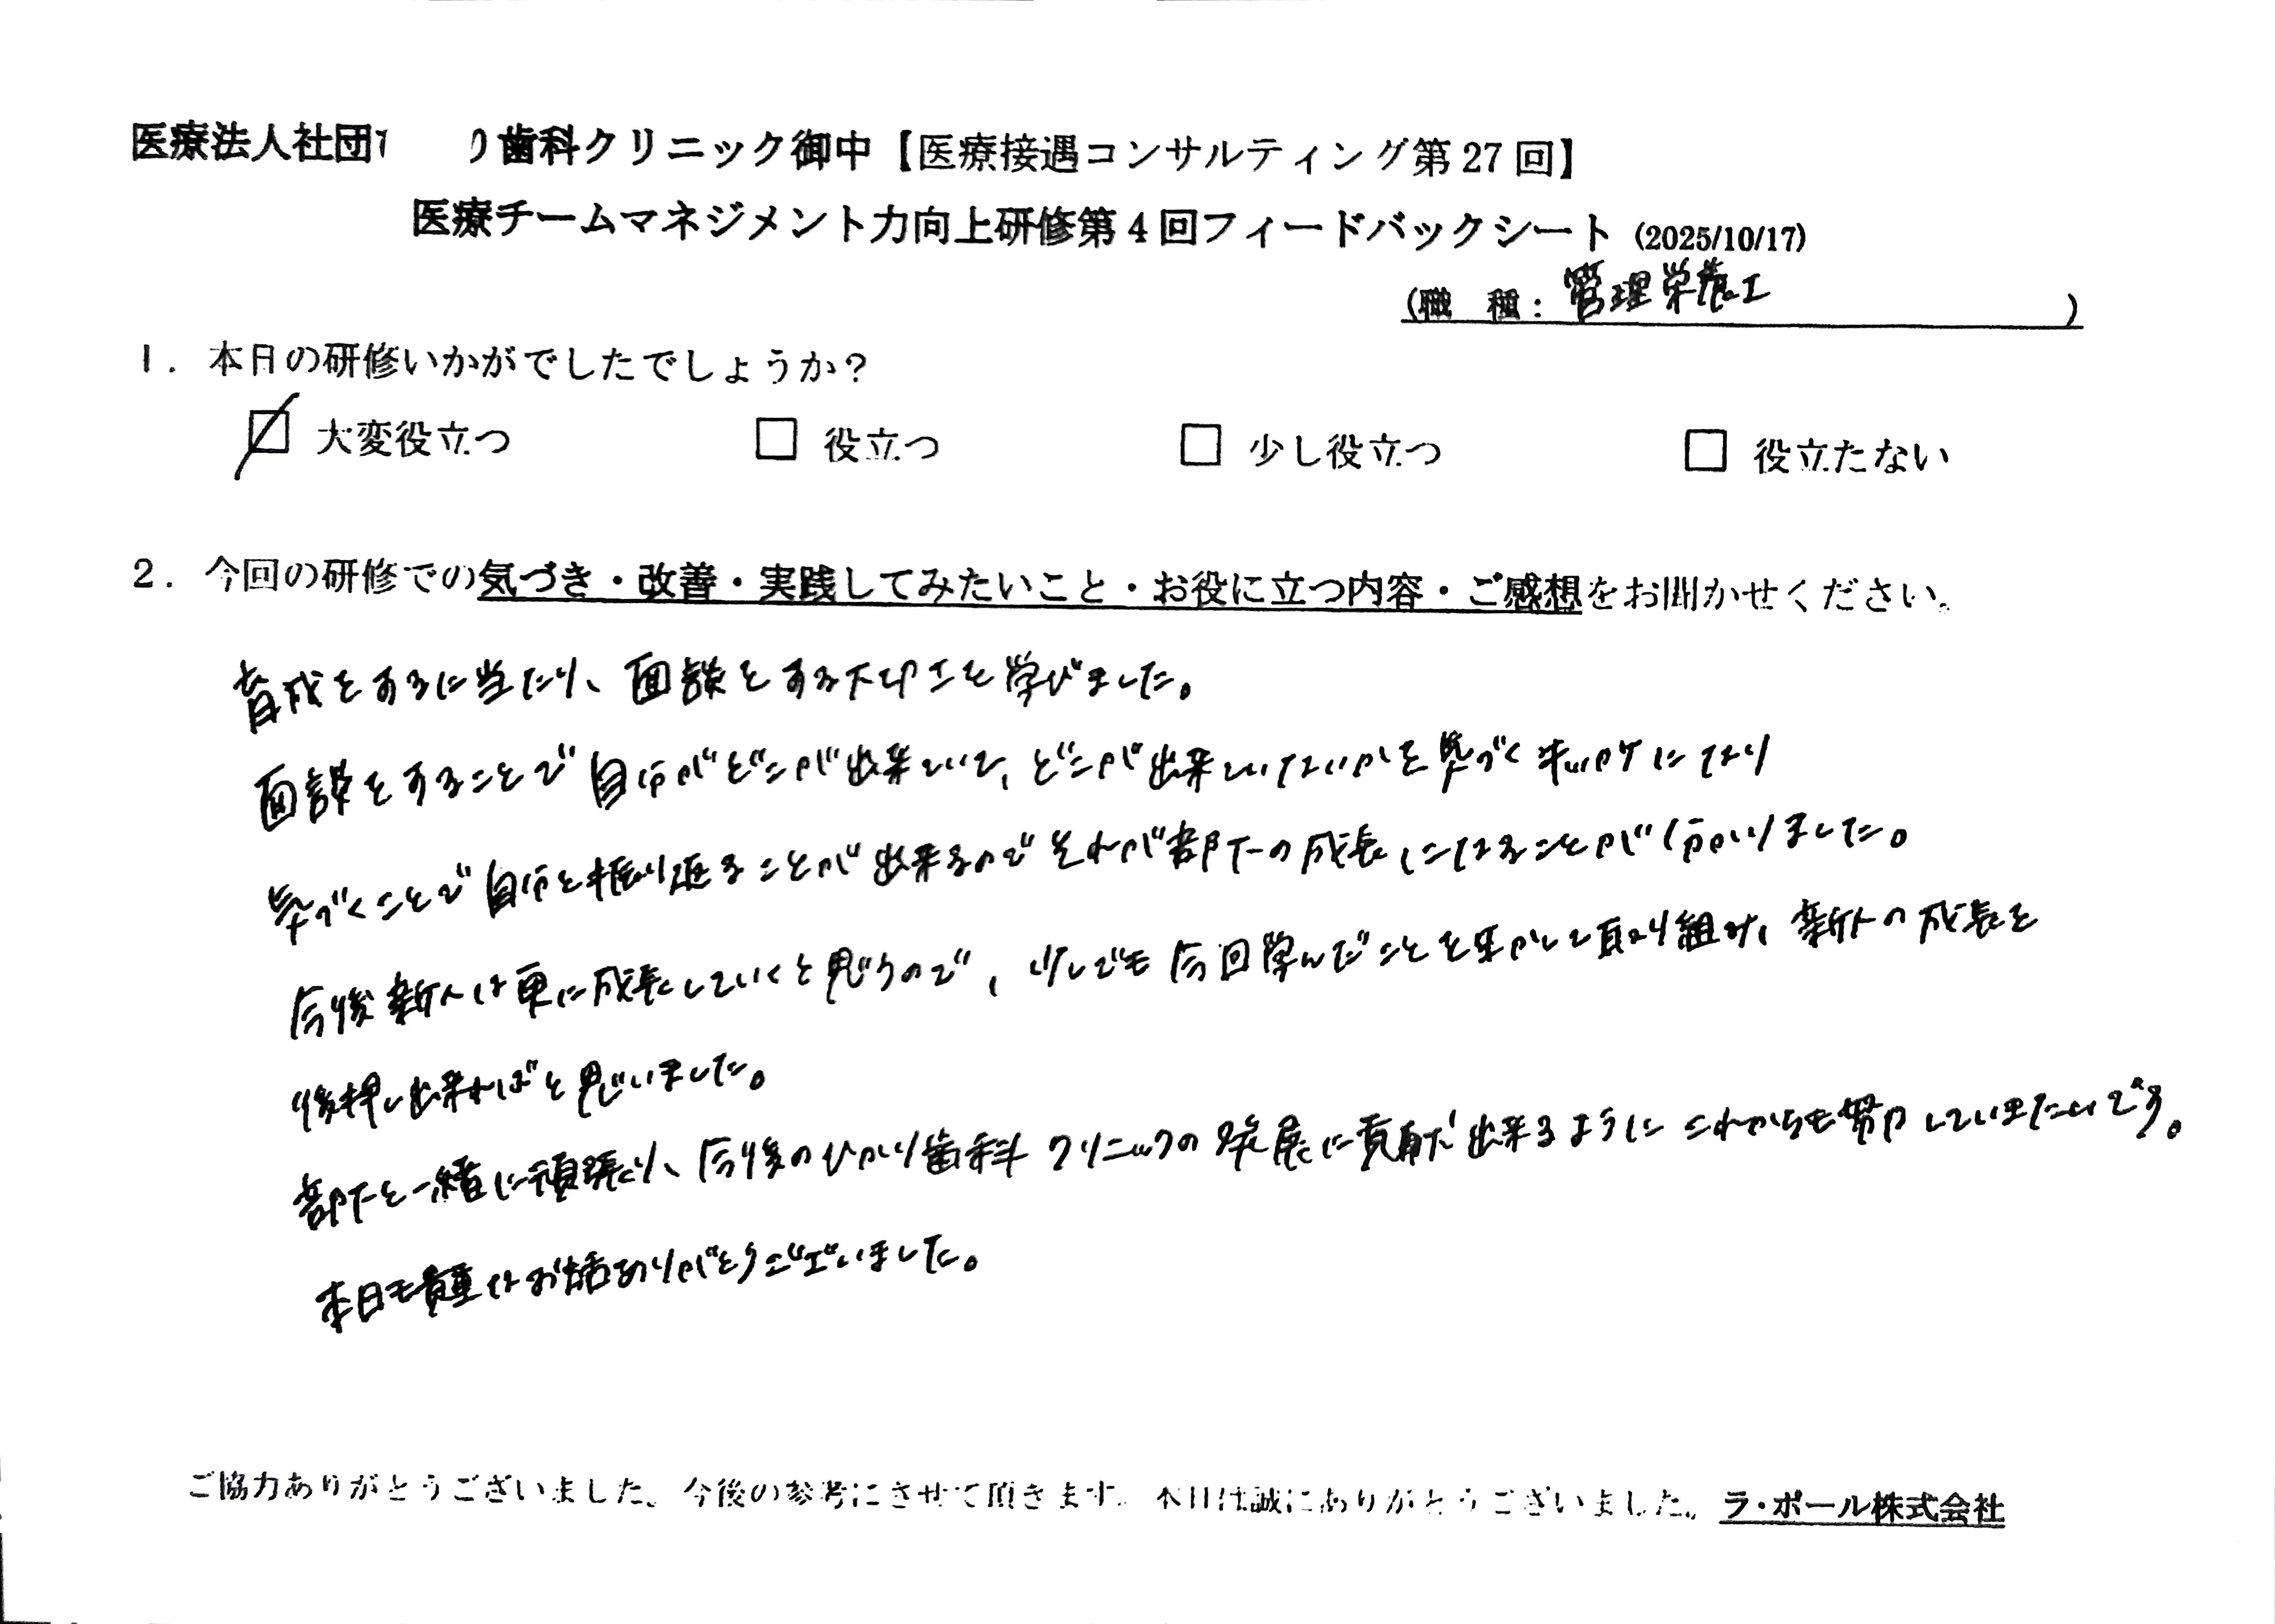 医療法人社団 り歯科クリニック御中【医療接遇コンサルティング第27回】
医療チームマネジメント力向上研修第4回フィードバックシート (2025/10/17)
(職 種: 管理栄養士 )
1. 本日の研修いかがでしたでしょうか?
☑ 大変役立つ □ 役立つ □ 少し役立つ □ 役立たない
2. 今回の研修での気づき・改善・実践してみたいこと・お役に立つ内容・ご感想をお聞かせください。
育成をするに当たり、面談をする大切さを学びました。
面談をすることで自分がどこが出来ていて、どこが出来ていないかを気づくキッカケになり
気づくことで自分を振り返ることが出来るのでそれが部下の成長になることが分かりました。
今後新人は更に成長していくと思うので、少しでも今回学んだことを生かして取り組み、新人の成長を
後押し出来ればと思いました。
部下と一緒に頑張り、今後のひかり歯科クリニックの発展に貢献出来るようにこれからも努力していきたいです。
本日も貴重なお話ありがとうございました。
ご協力ありがとうございました。今後の参考にさせて頂きます。本日は誠にありがとうございました。ラ・ポール株式会社